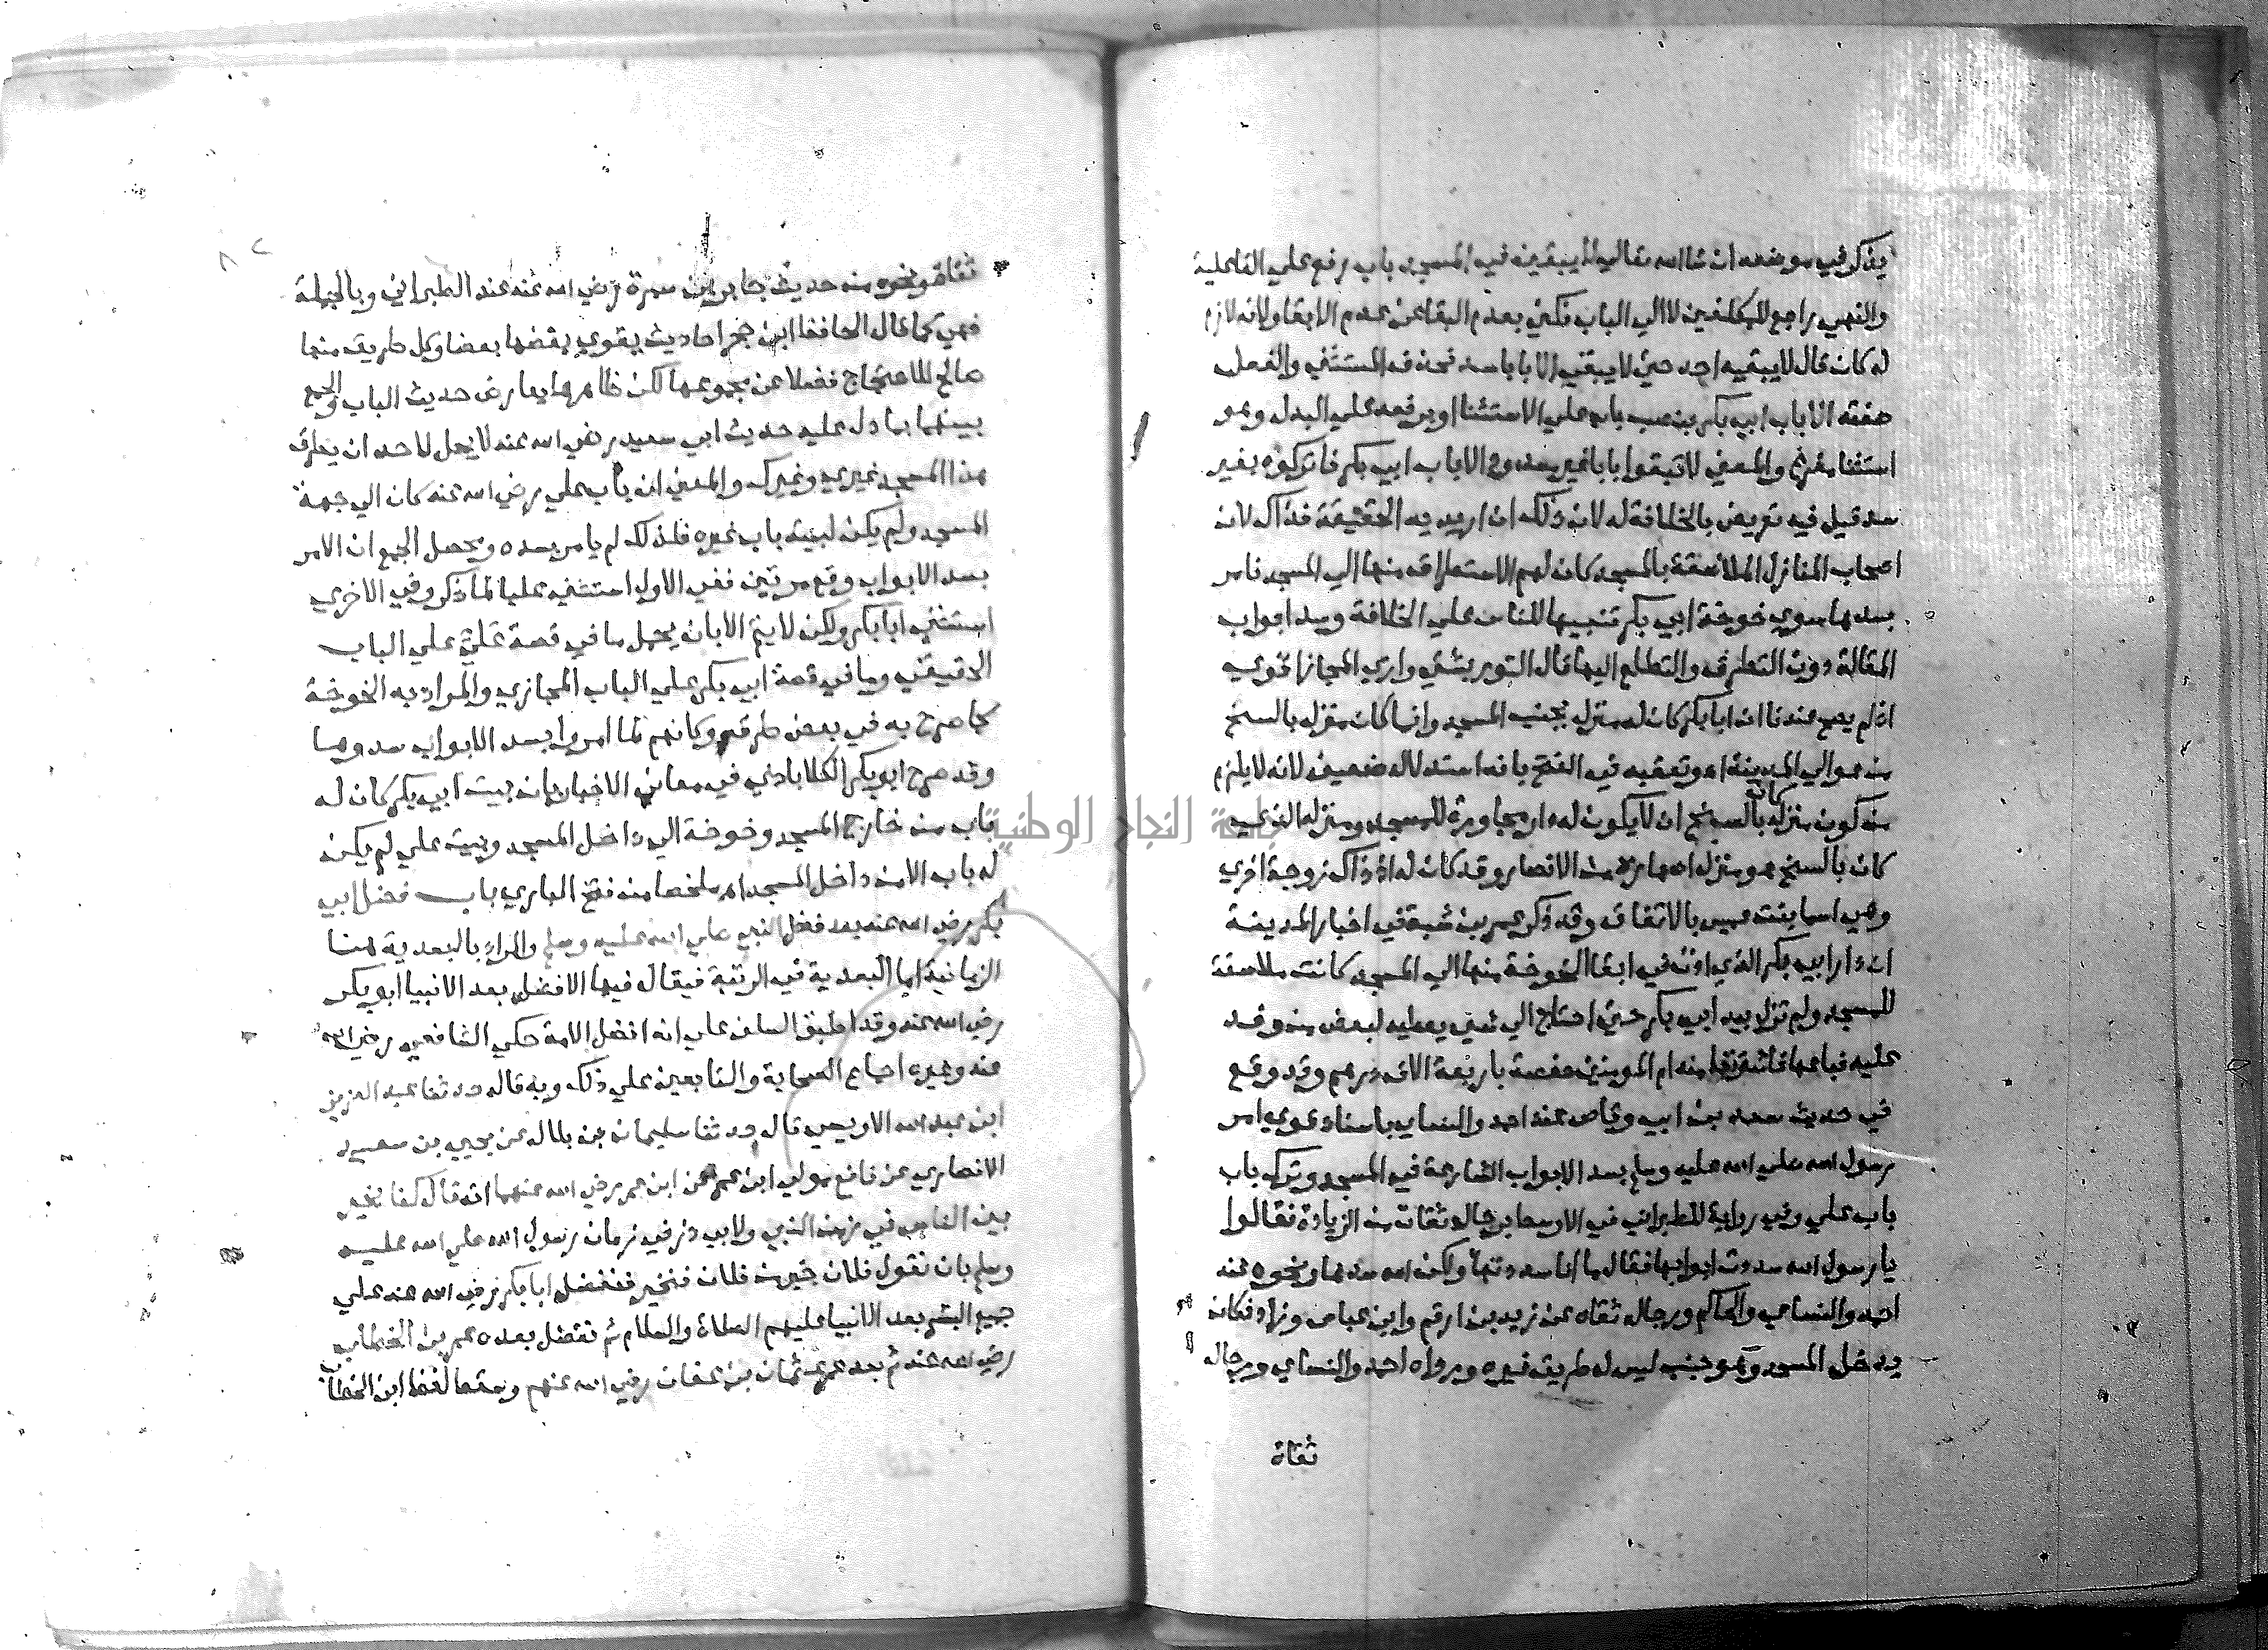 يذكر في موضعه ان شا الله تعالي لا يبقين في المسجد باب رفع علي الفاعلية
والنهي راجع للمكلفين لا الي الباب فكني بعدم البقا عن عدم الابقا ولانه لازم
له كانه قال لا يبقيه احد حتي لا يبقي الا بابا سد فحذف المستثني والفعل
صفته الا باب ابي بكر بنصب باب علي الاستثنا او برفعه علي البدل وهو
استثنا مفرغ والمعني لا تبقوا بابا غير مسدود الا باب ابي بكر فاتركوه بغير
سد قيل فيه تعريض بالخلافة له لان ذلك ان اريد به الحقيقة فذاك لان
اصحاب المنازل الملاصقة بالمسجد كان لهم الاستطراق منها الي المسجد فامر
بسدها سوي خوخة ابي بكر تنبيها للناس علي الخلافة وسد ابواب
المقالة دون التطرق والتطلع اليها قال التوربشتي واري المجاز اقوي
اذ لم يصح عندنا ان ابا بكر كان له منزل بجنب المسجد وانما كان منزله بالسنح
من عوالي المدينة اه وتعقبه في الفتح بانه استدلال ضعيف لانه لا يلزم
من كون منزله كان بالسنح ان لا يكون له دار مجاورة للمسجد ومنزله الذي
كان بالسنح هو منزل اصهاره من الانصار وقد كان له اذ ذاك زوجة اخري
وهي اسما بنت عميس بالاتفاق وقد ذكر عمر بن شبة في اخبار المدينة
ان دار ابي بكر الذي اذن في ابقا الخوخة منها الي المسجد كانت ملاصقة
للمسجد ولم تزل بيد ابي بكر حتي احتاج الي شي يعطيه لبعض من وفد
عليه فباعها فاشترتها منه ام المومنين حفصة باربعة الاف درهم وقد وقع
في حديث سعد بن ابي وقاص عند احمد والنساي باسناد قوي امر
رسول الله صلي الله عليه وسلم بسد الابواب الشارعة في المسجد وترك باب
باب علي وفي رواية للطبراني في الاوسط برجال ثقات من الزيادة فقالوا
يا رسول الله سددت ابوابها فقال ما انا سددتها ولكن الله سدها ونحوه عند
احمد والنساي والحاكم ورجال ثقاه عن زيد بن ارقم وابن عباس وزاد فكان
يدخل المسجد وهو جنب ليس له طريق غيره ورواه احمد والنساي ورجاله
ثقاة
ثقاة ونحوه من حديث جابر بن سمرة رضي الله عنه عند الطبراني وبالجملة
فهي كما قال الحافظ ابن حجر احاديث يقوي بعضها بعضا وكل طريق منها
صالح للاحتجاج فضلا عن مجموعها لكن ظاهرها يعارض حديث الباب والجمع
بينهما بما دل عليه حديث ابي سعيد رضي الله عنه لا يحل لاحد ان يطرق
هذا المسجد غيري وغيرك والمعني ان باب علي رضي الله عنه كان الي جهة
المسجد ولم يكن لبيته باب غيره فلذلك لم يامر بسده ويحصل الجمع ان الامر
بسد الابواب وقع مرتين ففي الاول استثني عليا لما ذكر وفي الاخري
استثني ابا بكر ولكن لا يتم الا بان يحمل ما في قصة علي علي الباب
الحقيقي وما في قصة ابي بكر علي الباب المجازي والمراد به الخوخة
كما صرح به في بعض طرقه وكانهم لما امروا بسد الابواب سدوها
وقد صرح ابو بكر الكلاباذي في معاني الاخبار بان بيت ابي بكر كان له
باب من خارج المسجد وخوخة الي داخل المسجد وبيت علي لم يكن
له باب الا من داخل المسجد اه ملخصا من فتح الباري باب فضل ابي
بكر رضي الله عنه بعد فضل النبي صلي الله عليه وسلم والمراد بالبعدية هنا
الزمانية اما البعدية في الرتبة فيقال فيها الافضل بعد الانبيا ابو بكر
رضي الله عنه وقد اطبق السلف علي انه افضل الامة حكي الشافعي رضي الله
عنه وغيره اجماع الصحابة والتابعين علي ذلك وبه قال حدثنا عبد العزيز
ابن عبد الله الاويسي قال حدثنا سليمان بن بلال عن يحيي بن سعيد
الانصاري عن نافع مولي ابن عمر عن ابن عمر رضي الله عنهما انه قال كنا نخير
بين الناس في زمن النبي ولابي ذر في زمان رسول الله صلي الله عليه
وسلم بان نقول فلان خير من فلان فنخير فنفضل ابا بكر رضي الله عنه علي
جميع البشر بعد الانبيا عليهم الصلاة والسلام ثم نفضل بعده عمر بن الخطاب
رضي الله عنه ثم بعد عمر عثمان بن عفان رضي الله عنهم وسقط لفظ ابن الخطاب
جامعة النجاح الوطنية